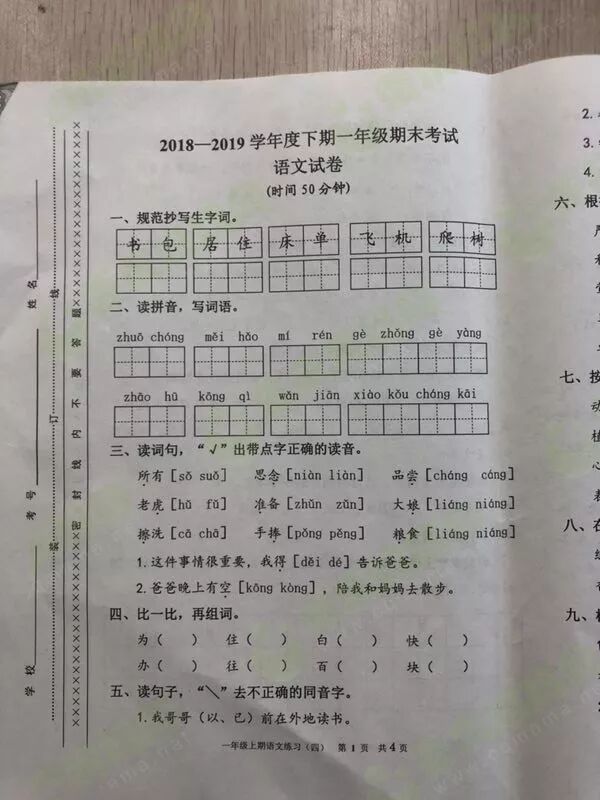 2018—2019 学年度下期一年级期末考试
语文试卷
(时间 50 分钟)
一、规范抄写生字词。
书 包 居 住 床 单 飞 机 爬 树
二、读拼音，写词语。
zhuō chóng měi hǎo mí rén gè zhǒng gè yàng
zhāo hū kōng qì wǎn jiān xiào kǒu cháng kāi
三、读词句，“√”出带点字正确的读音。
所有[sǒ suǒ] 思念[niàn liàn] 品尝[cháng cáng]
老虎[hǔ fǔ] 准备[zhǔn zǔn] 大娘[liáng niáng]
擦洗[cā chā] 手捧[pǒng pěng] 粮食[liáng niáng]
1.这件事情很重要，我得[děi dé]告诉爸爸。
2.爸爸晚上有空[kōng kòng]，陪我和妈妈去散步。
四、比一比，再组词。
为（ ） 住（ ） 白（ ） 快（ ）
办（ ） 往（ ） 百（ ） 块（ ）
五、读句子，“╲”去不正确的同音字。
1.我哥哥（以、已）前在外地读书。
一年级上期语文练习（四） 第 1 页 共 4 页
学校
考号
姓名
装 订 线
×××××××密 封 线 内 不 要 答 题×××××××
2.
3.
4.
六、根
七、按
动
植
心
八、在
九、